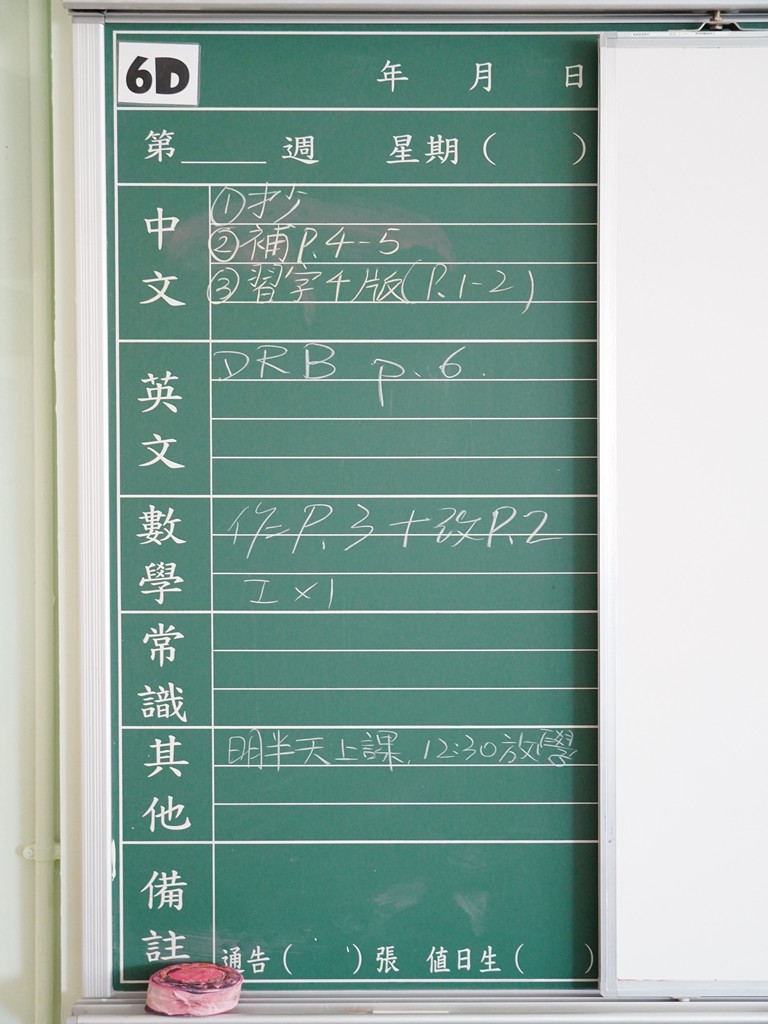 6D
年 月 日
第____週 星期( )
中文
①抄
②補P.4-5
③習字4版(P.1-2)
英文
DRB p.6.
數學
作=P.3+改P.2
工×1
常識
其他
明半天上課, 12:30放學
備註
通告( )張 值日生( )